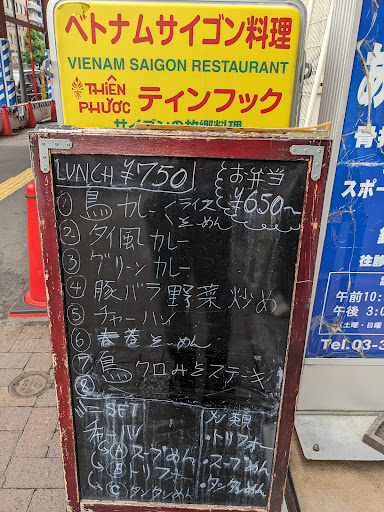 ベトナムサイゴン料理
VIENAM SAIGON RESTAURANT
THIÊN PHƯỚC ティンフック
サイゴンの故郷料理
LUNCH ¥750
お弁当
¥650~
① 鳥カレー ライス
そーめん
② タイ風カレー
③ グリーンカレー
④ 豚バラ野菜炒め
⑤ チャーハン
⑥ 春巻そーめん
⑦ 鳥クロみそステーキ
⑧
SET
チャーハン
Ⓐ スープめん
Ⓑ トリフォー
Ⓒ タンタンめん
メン類
・トリフォー
・スープめん
・タンタンめん
スポー
往診
午前10:
午後 3:0
土曜・日曜
Tel.03-3